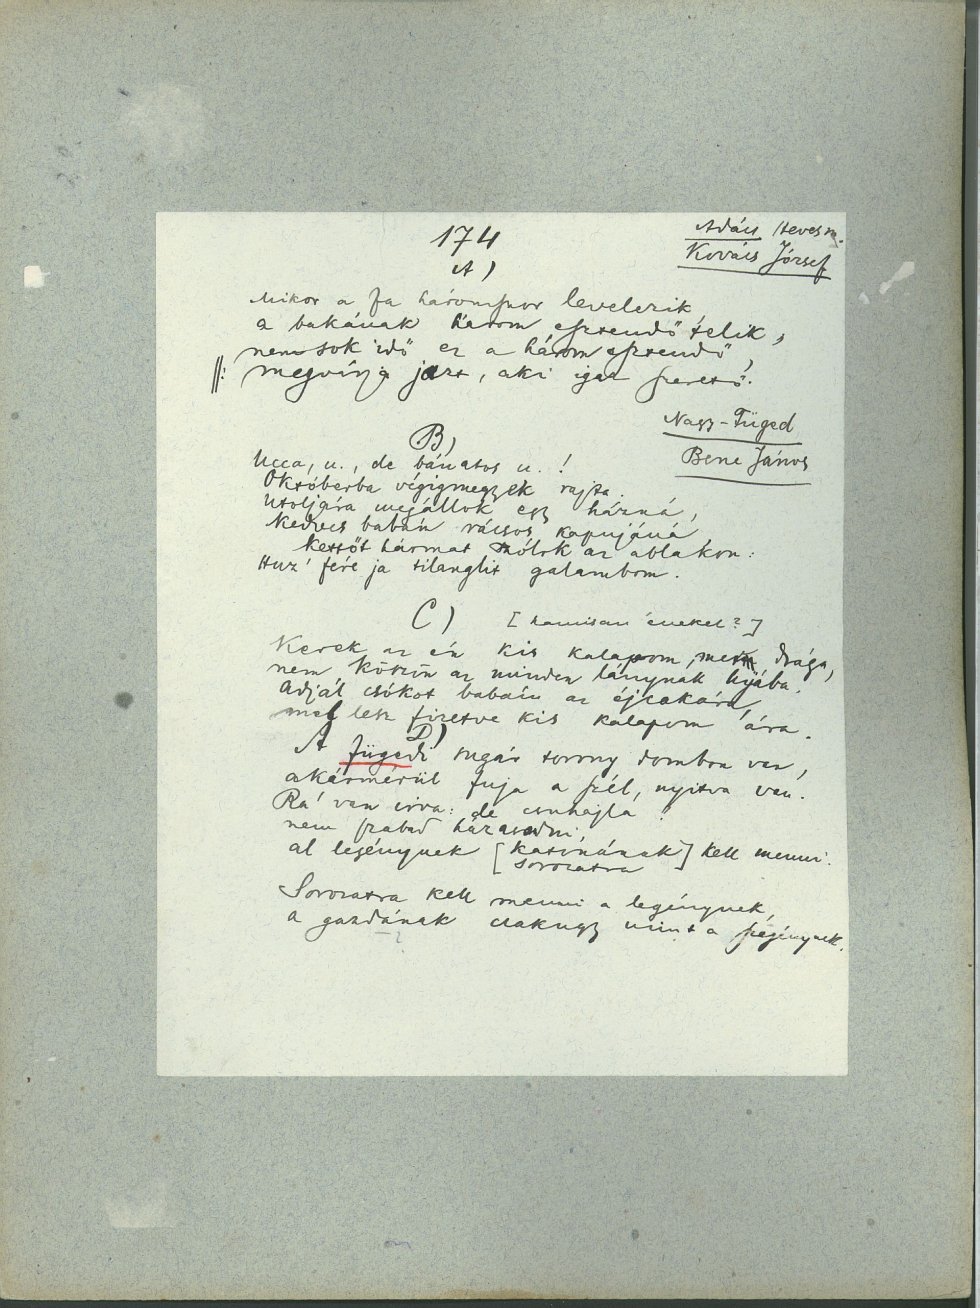 174
Adács Heves m.
Kovács József
A)
Mikor a fa háromszor levelezik
a bakának három esztendő telik,
nem sok idő ez a három esztendő,
||: megvárja jazt, aki igaz szerető.
Nagy-Füged
Bene János
B)
Ucca, u., de bánatos u. !
Októberba végigmegyek rajta.
Utoljára megállok egy házná,
Kedves babám rácsos kapujáná
Kettőt hármat szólok az ablakon:
Huz' féré ja silanglit galambom.
C) [hamisan énekel?]
Kerek az én kis kalapom, mert drága,
nem kötöm az minden lánynak hijába.
Adjál csókot babám az éjcakára,
mel lesz fizetve kis kalapom ára.
D)
A fügedi sugár torony dombon van,
akármérül fuja a szél, nyitva van.
Rá van irva: de csuhajla
nem szabad házasodni,
al legénynek [katonának] kell menni.
sorozatra
Sorozatra kell menni a legénynek,
a gazdának csakugy mint a szegénynek.